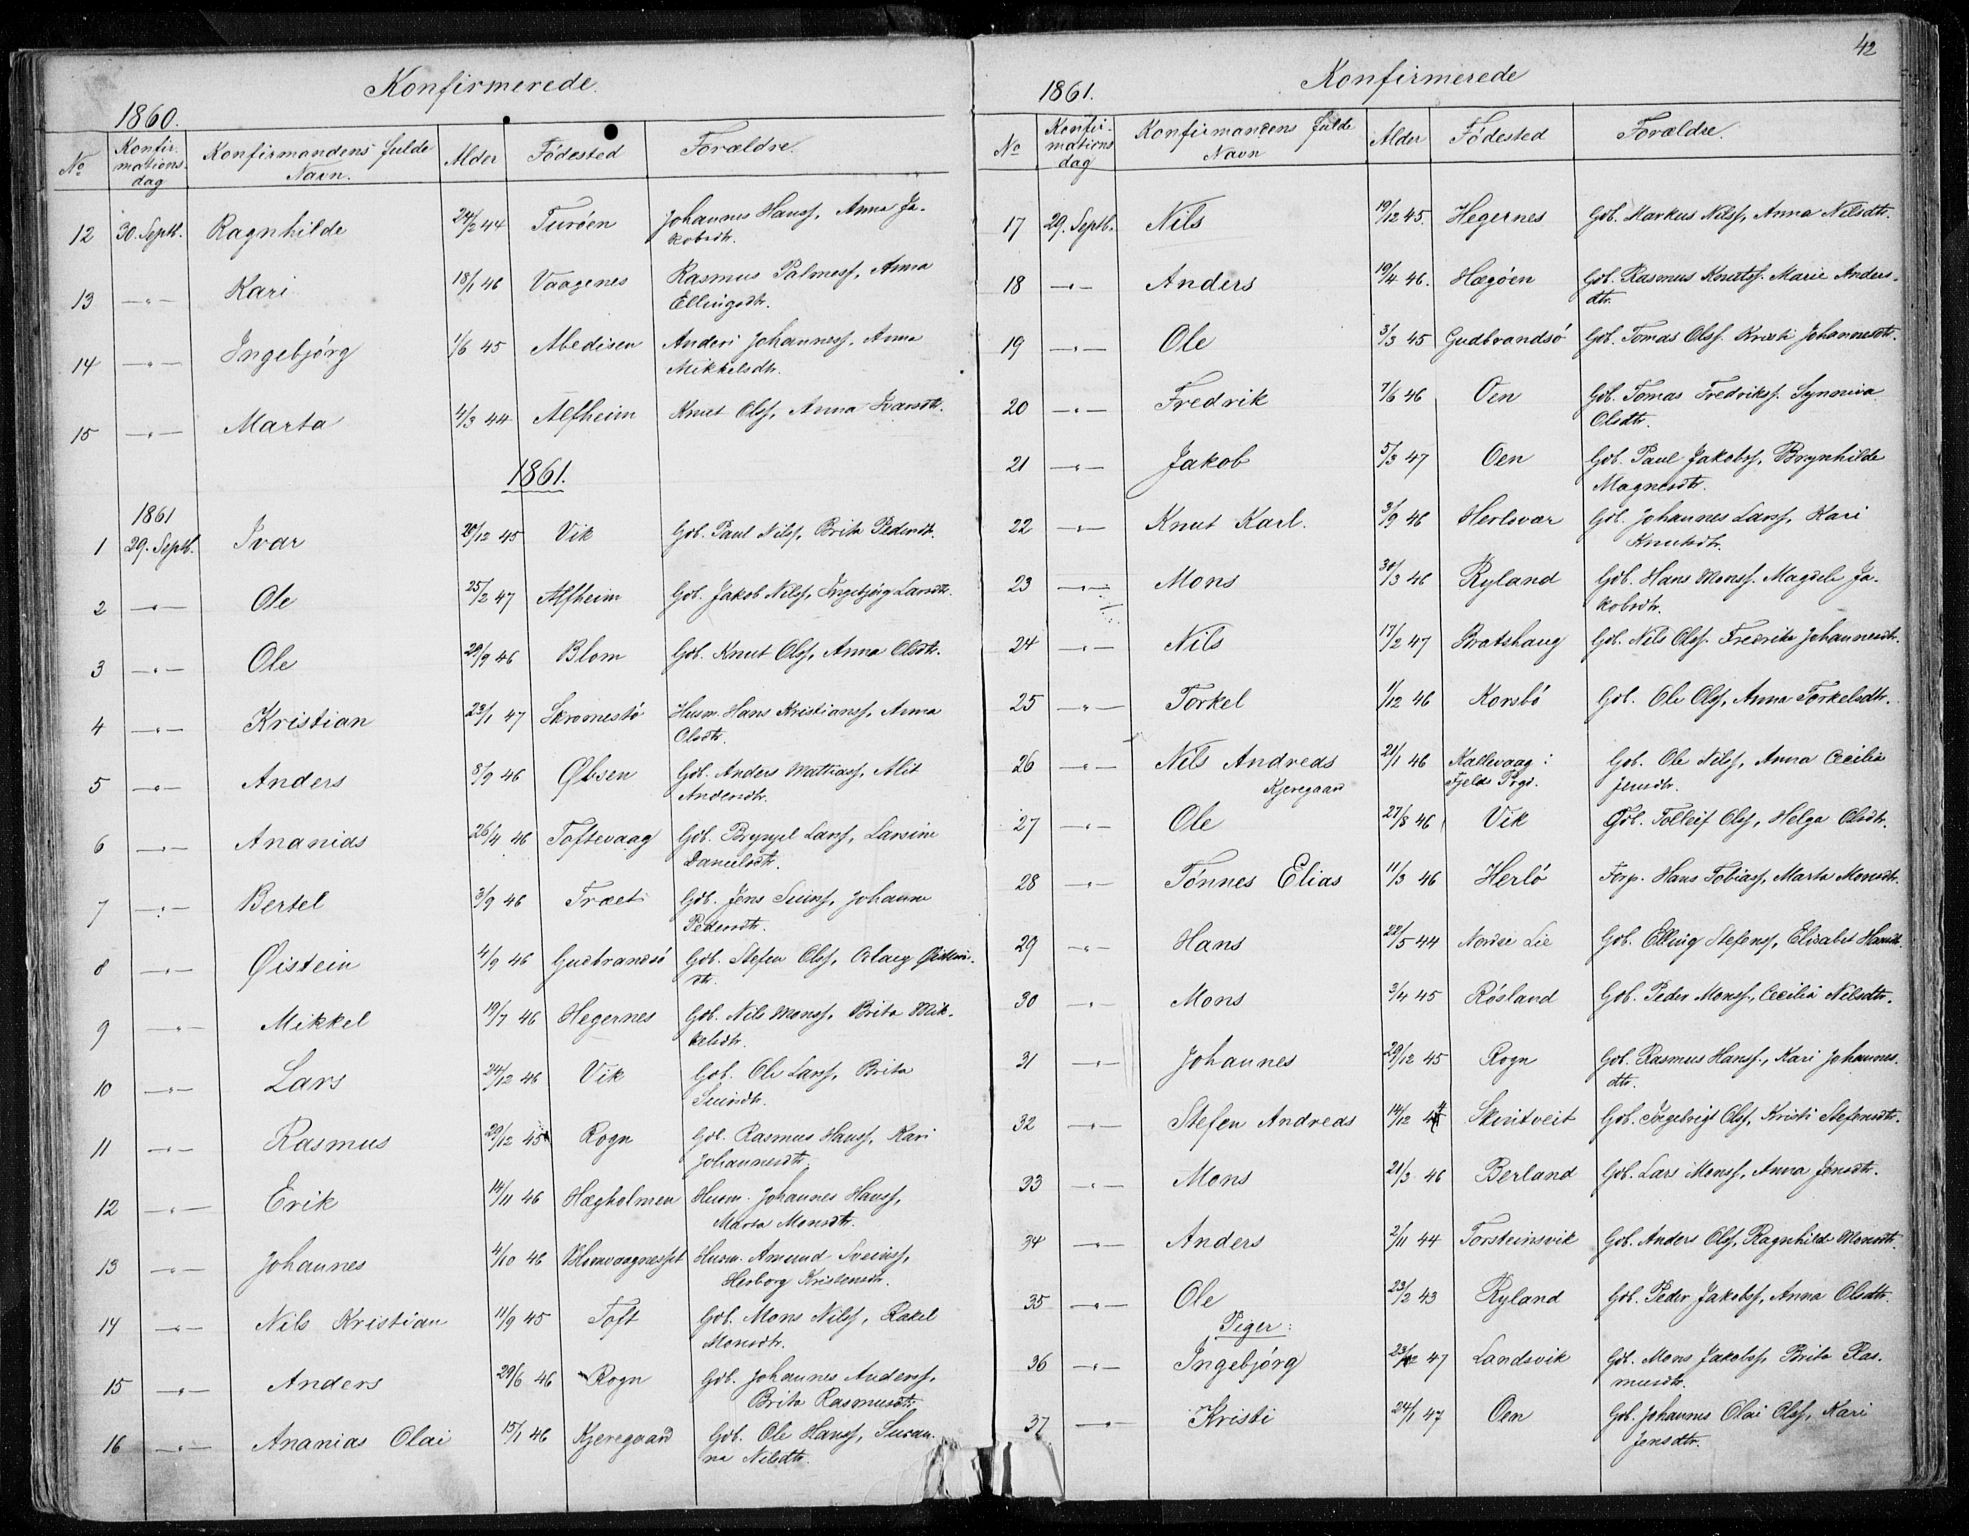 Konfirmerede.
1860.
No
Konfir-
mations-
dag
Konfirmandens fulde
Navn.
Alder
Födested
Forældre.
12 30. Septb. Ragnhilde 24/2 44 Turöen Johannes Hanss, Anna Ja-
kobsdtr.
13 —"— Kari 18/1 46 Vaagenes Rasmus Palmess, Anna
Ellingsdtr.
14 —"— Ingebjörg 1/6 45 Abedisen Anders Johanness, Anna
Mikkelsdtr.
15 —"— Marta 4/3 44 Alfheim Knut Olss, Anna Ivarsdtr.
1861.
1861
1 29. Septb. Ivar 20/12 45 Vik Gdb. Paul Nilss, Brita Pedersdtr.
2 —"— Ole 25/2 47 Alfheim Gdb. Jakob Nilss, Ingebjörg Larsdtr.
3 —"— Ole 29/9 46 Blom Gdb. Knut Olss, Anna Olsdtr.
4 —"— Kristian 23/1 47 Skromestö Husm. Hans Kristianss, Anna
Olsdtr.
5 —"— Anders 8/9 46 Öbsen Gdb. Anders Mattiass, Alit
Andersdtr.
6 —"— Ananias 26/4 46 Toftevaag Gdb. Brynjel Larss, Larsine
Danielsdtr.
7 —"— Bertel 3/9 46 Træet Gdb. Jens Suins, Johanne
Pedersdtr.
8 —"— Öistein 4/9 46 Gudbrandsö Gdb. Stefen Olss, Olaug
dtr.
9 —"— Mikkel 19/7 46 Hegernes Gdb. Nils Monss, Brita Mik-
kelsdtr.
10 —"— Lars 24/12 46 Vik Gdb. Ole Larss, Brita
11 —"— Rasmus 29/12 45 Rogn Gdb. Rasmus Hanss, Kari
Johannesdtr.
12 —"— Erik 14/11 46 Hægholmen Husm. Johannes Hanss,
Marta Monsdtr.
13 —"— Johannes 4/10 46 Blomvaagnesset Husm. Amund Sveinss,
Herborg Kristensdtr.
14 —"— Nils Kristian 11/9 45 Toft Gdb. Mons Nilss, Rakel
Monsdtr.
15 —"— Anders 29/6 46 Rogn Gdb. Johannes Anderss,
Brita Rasmusdtr.
16 —"— Ananias Olai 15/1 46 Kjeregaard Gdb. Ole Hanss, Susan-
na Nilsdtr.
42
Konfirmerede
1861.
No
Konfir-
mations
dag
Konfirmandens fulde
Navn
Alder
Födested
Forældre.
17 29. Septb. Nils 19/12 45. Hegernes Gdb. Markus Nilss, Anna Nilsdtr.
18 —"— Anders 19/4 46. Hægöen Gdb. Rasmus Knutss. Marie Anders-
dtr.
19 —"— Ole 3/3 45 Gudbrandsö Gdb. Tomas Olss. Kristi Johannesdtr.
20 —"— Fredrik 7/6 46 Oen Gdb. Tomas Fredrikss. Synniva
Olsdtr.
21 —"— Jakob 5/3 47 Oen Gdb. Paul Jakobss, Brynhilde
Magnesdtr.
22 —"— Knut Karl. 3/9 46 Herlsvær Gdb. Johannes Larss, Kari
Knutsdtr.
23 —"— Mons 30/3 46 Ryland Gdb. Hans Monss. Magdele Ja-
kobsdtr.
24 —"— Nils 17/2 47 Bratshaug Gdb. Nils Olss. Fredrike Johannesdtr.
25 —"— Torkel 1/12 46 Korsbö Gdb. Ole Olss, Anna Torkelsdtr.
26 —"— Nils Andreas 21/1 46 Kallevaag i Gdb. Ole Nilss, Anna Cecilia
Kjeregaard Fjelds Prgd. Jensdtr.
27 —"— Ole 27/8 46 Vik Gdb. Tolleif Olss, Helga Olsdtr.
28 —"— Tönnes Elias 11/3 46 Herlö Forp. Hans Tobiass, Marta Monsdtr.
29 —"— Hans 22/5 44 Nordre Lie Gdb. Elling Stefenss, Elisabet Hansdtr.
30 —"— Mons 3/4 45 Rösland Gdb. Peder Monss, Cecilia Nilsdtr.
31 —"— Johannes 29/12 45 Rogn Gdb. Rasmus Hanss., Kari Johannes
dtr.
32 —"— Stefen Andreas 14/12 44 Skintveit Gdb. Ingebrigt Olss, Kristi Stefensdtr.
33 —"— Mons 21/3 46 Berland Gdb. Lars Monss, Anna Jensdtr.
34 —"— Anders 2/11 44 Torsteinsvik Gdb. Anders Olss, Ragnhilde Monsdtr.
35 —"— Ole 23/2 43 Ryland Gdb. Peder Jakobss, Anna Olsdtr.
Piger:
36 —"— Ingebjörg 23/2 47 Landsvik Gdb. Mons Jakobss, Brita Ras-
musdtr.
37 —"— Kristi 24/1 47 Oen Gdb. Johannes Olai Olss, Kari
Jensdtr.